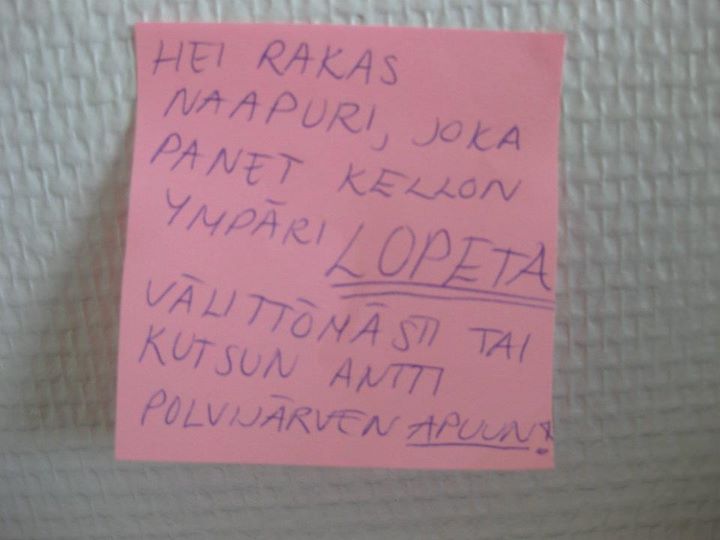 HEI RAKAS
NAAPURI, JOKA
PANET KELLON
YMPÄRI LOPETA
VÄLITTÖMÄSTI TAI
KUTSUN ANTTI
POLVIJÄRVEN APUUN!